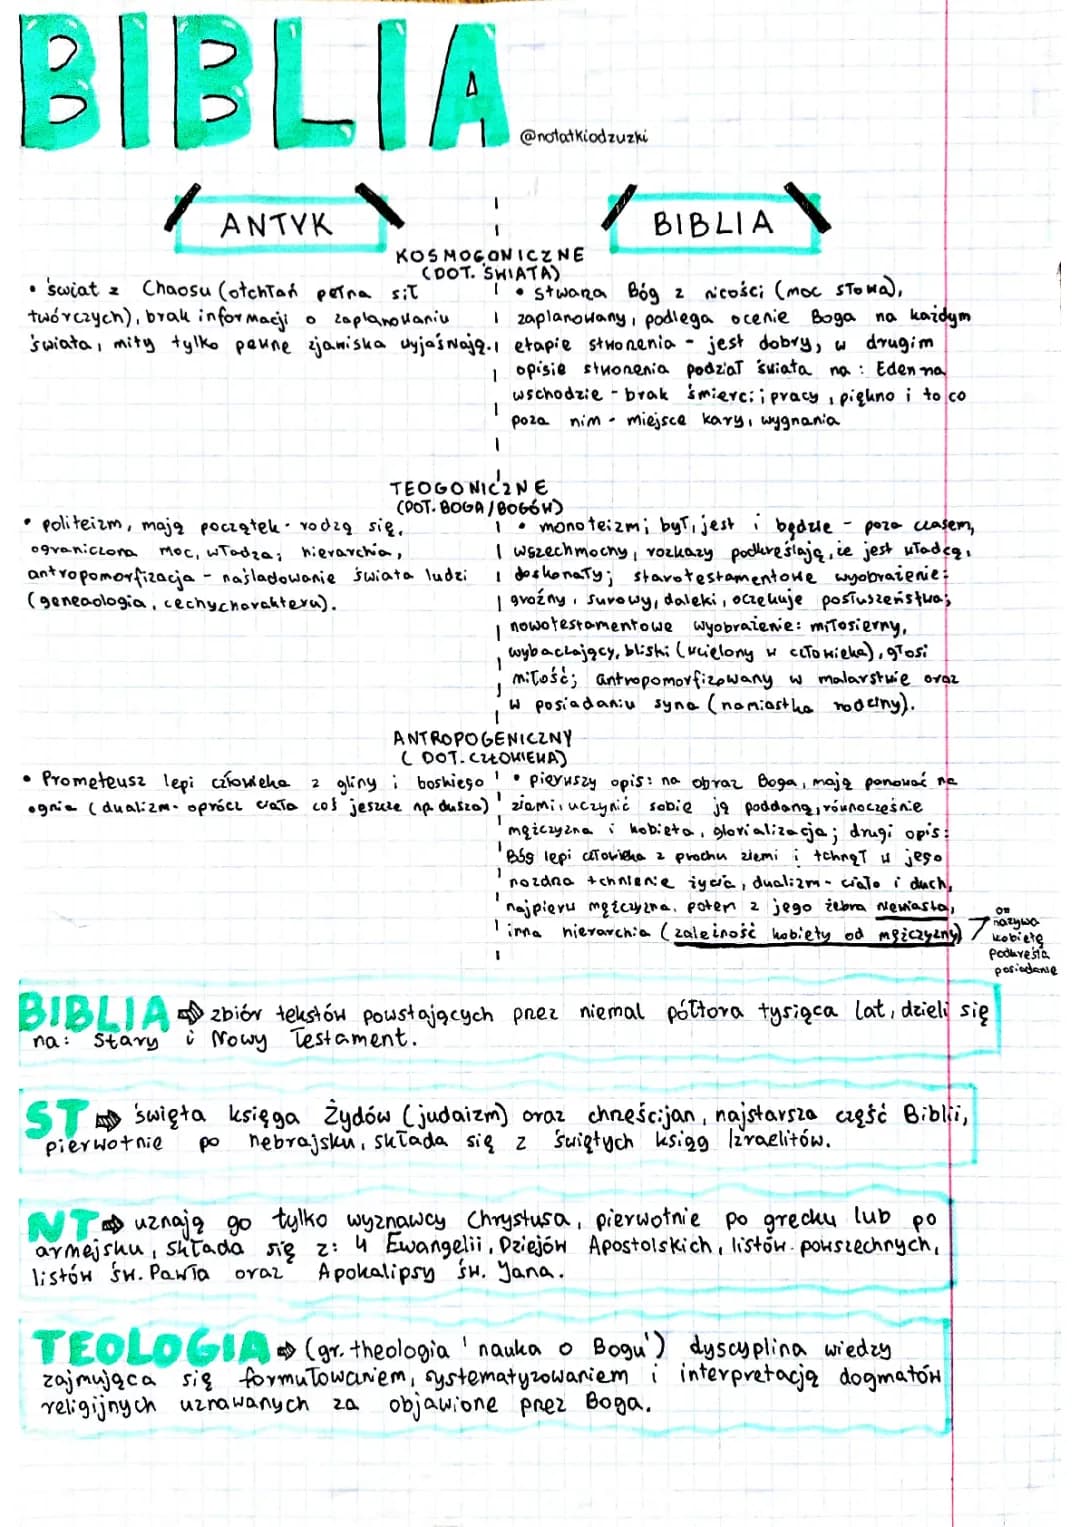 BIBLIA
@notatkiodzuzki
ANTYK
BIBLIA
KOSMOGONICZNE
(DOT. ŚWIATA)
• świat z Chaosu (otchłań pełna sił
twórczych), brak informacji o zaplanowaniu
świata, mity tylko pewne zjawiska wyjaśniają.
• stwarza Bóg z nicości (moc słowa),
zaplanowany, podlega ocenie Boga na każdym
etapie stworzenia - jest dobry, w drugim
opisie stworzenia podział świata na: Eden na
wschodzie - brak śmierci i pracy, piękno i to co
poza nim - miejsce kary, wygnania
TEOGONICZNE
(DOT. BOGA/BOGÓW)
• politeizm, mają początek - rodzą się,
ograniczona moc, władza; hierarchia,
antropomorfizacja - naśladowanie świata ludzi
(geneaologia, cechy charakteru).
• monoteizm; był, jest i będzie - poza czasem,
wszechmocny, rozkazy podkreślają, że jest władcą,
doskonały; starotestamentowe wyobrażenie:
groźny, surowy, daleki, oczekuje posłuszeństwa;
nowotestamentowe wyobrażenie: miłosierny,
wybaczający, bliski (wcielony w człowieka), głosi
miłość; antropomorfizowany w malarstwie oraz
w posiadaniu syna (namiastka rodziny).
ANTROPOGENICZNY
(DOT. CZŁOWIEKA)
• Prometeusz lepi człowieka z gliny i boskiego
ognia (dualizm - oprócz ciała coś jeszcze np. dusza)
• pierwszy opis: na obraz Boga, mają panować na
ziemi, uczynić sobie ją poddaną, równocześnie
mężczyzna i kobieta, glorializacja; drugi opis:
Bóg lepi człowieka z prochu ziemi i tchnął w jego
nozdrza tchnienie życia, dualizm - ciało i duch,
najpierw mężczyzna, potem z jego żebra Niewiasta,
inna hierarchia (zależność kobiety od mężczyzny)
on
nazywa
kobietę
podkreśla
posiadanie
BIBLIA ⇒ zbiór tekstów powstających przez niemal półtora tysiąca lat, dzieli się
na: Stary i Nowy Testament.
ST ⇒ święta księga Żydów (judaizm) oraz chrześcijan, najstarsza część Biblii,
pierwotnie po hebrajsku, składa się z świętych ksiąg Izraelitów.
NT ⇒ uznają go tylko wyznawcy Chrystusa, pierwotnie po grecku lub po
armejsku, składa się z: 4 Ewangelii, Dziejów Apostolskich, listów powszechnych,
listów św. Pawła oraz Apokalipsy św. Jana.
TEOLOGIA ⇒ (gr. theologia 'nauka o Bogu') dyscyplina wiedzy
zajmująca się formułowaniem, systematyzowaniem i interpretacją dogmatów
religijnych uznawanych za objawione przez Boga.